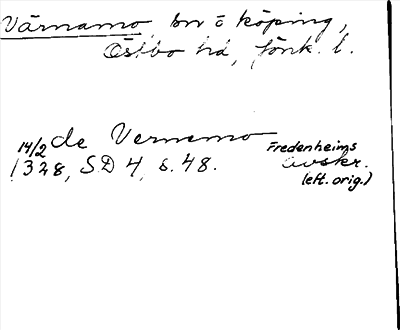 Värnamo, sn o köping,
Östbo hd, Jönk. l.
14/2 de Vernemo Fredenheims
1328, SD 4, s. 48. avskr.
(eft. orig.)